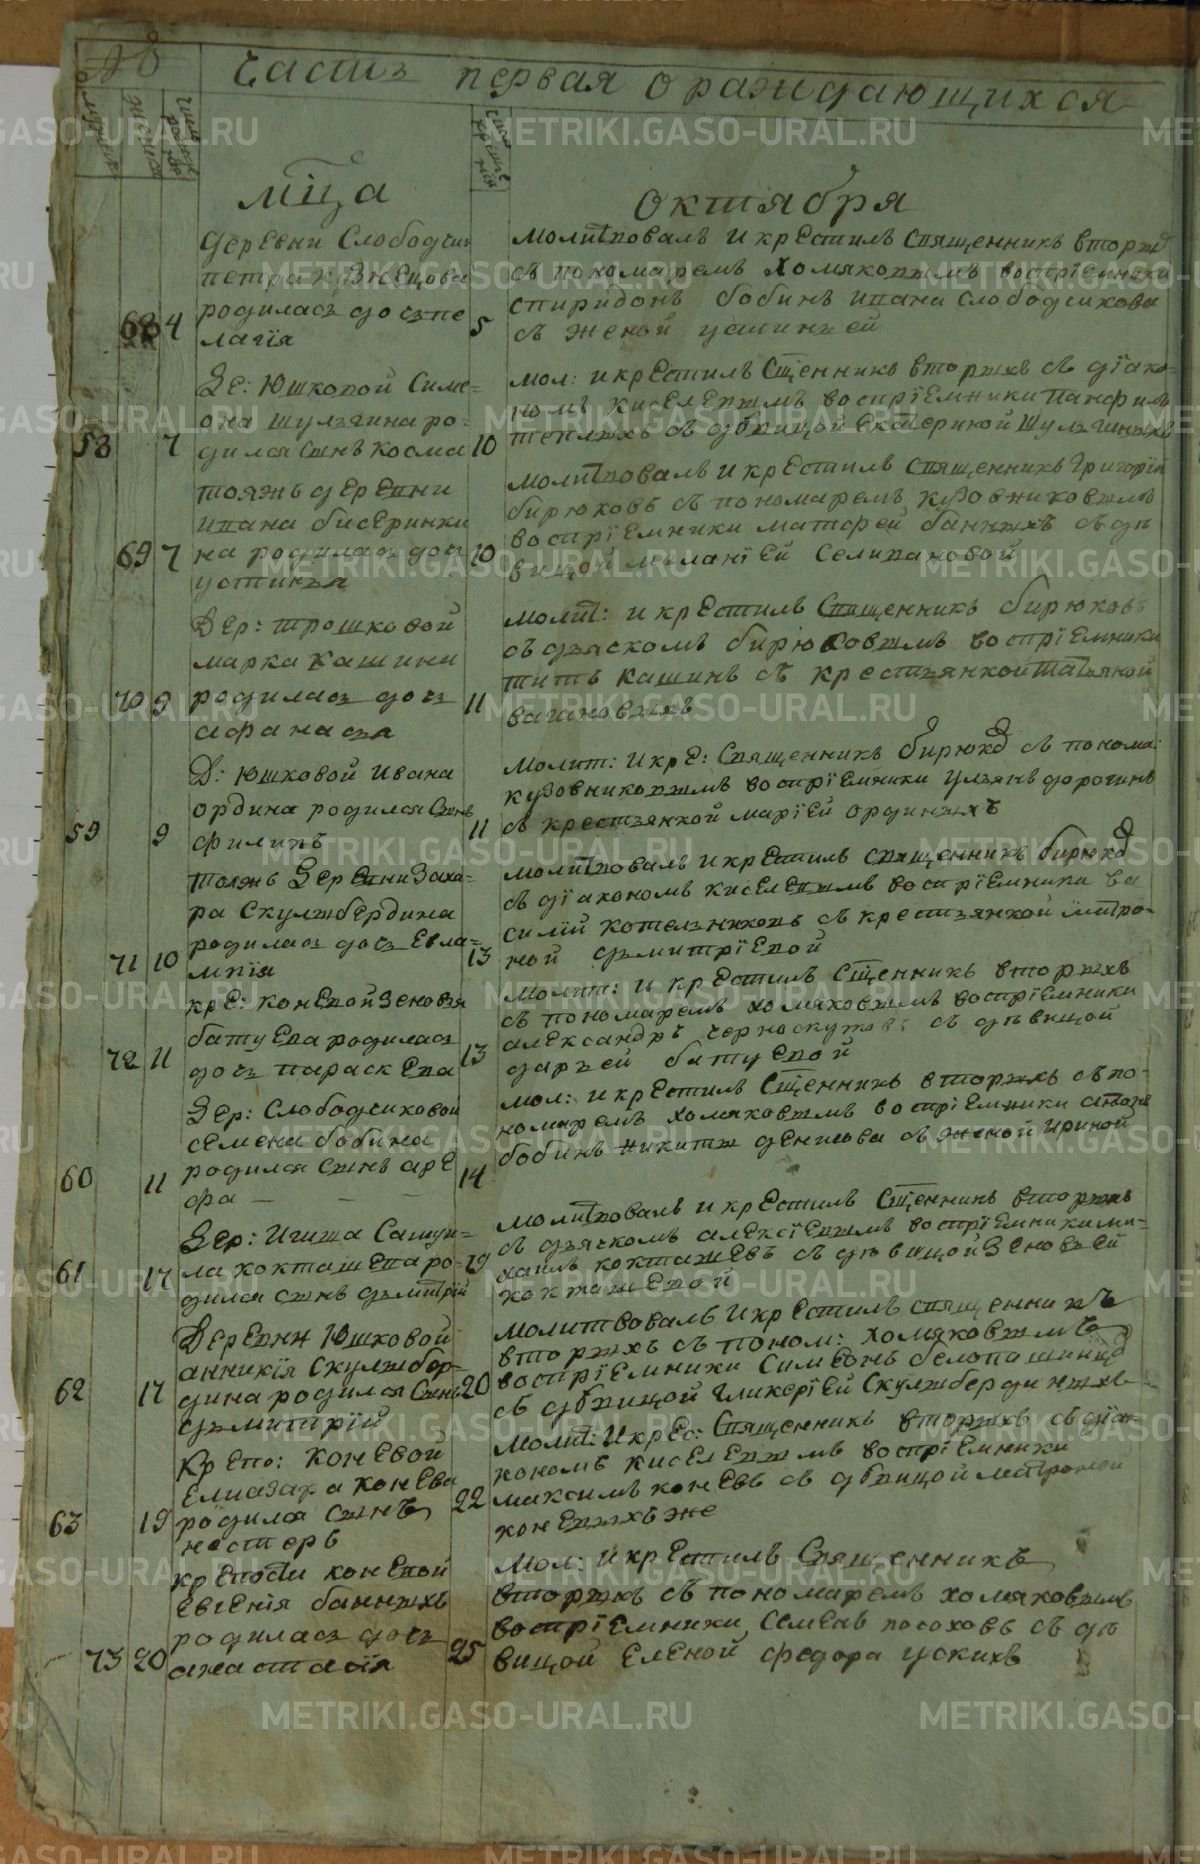 Часть первая о раждающихся
мца октября
деревни Слободчик
петра кузнецова
родилась дочь пе
лагія
68 4 5
молитвовалъ и крестилъ священникъ вторыхъ
съ пономаремъ хомяковымъ воспріемники
спиридонъ бобинъ ивана слободчикова
съ женой устиньей
де: Юшковой Симе=
она шулягина ро=
дился сынъ косма
58 7 10
мол: и крестилъ Сщенникъ вторыхъ съ діако=
номъ киселевымъ воспріемники панфилъ
теплыхъ съ дѣвицой Екатериной шулягиныхъ
тояжъ деревни
ивана бисеринки
на родилась дочь
устинья
69 7 10
молитвовалъ и крестилъ священникъ Григорій
бирюковъ съ пономаремъ кузовниковымъ
воспріемники матфей банныхъ съ дѣ
вицой меланіей Селивановой
Дер: трошковой
марка кашини
родилась дочь
афанасья
70 9 11
молит: и крестилъ Священникъ бирюковъ
съ дьяскомъ бирюковымъ воспріемники
титъ кашинъ съ крестьянкой татьяной
вагановыхъ
Д: юшковой ивана
ордина родился сынъ
филипъ
59 9 11
молит: и кре: Священникъ бирюков съ понома:
кузовниковымъ воспріемники ульянъ дорогинъ
съ крестьянкой маріей ординыхъ
тояжъ деревни заха=
ра Скулыбердина
родилась дочь Евла=
мпія
71 10 13
молитвовалъ и крестилъ священникъ бирюков
съ діакономъ киселевымъ воспріемники ва
силій котельниковъ съ крестьянкой митро=
ной дьмитріевой
кре: коневой зеновья
батуева родилась
дочь параскева
72 11 13
молит: и крестилъ Сщенникъ вторыхъ
съ пономаремъ хомяковымъ воспріемники
александръ черноскутовъ съ дѣвицой
дарьей батуевой
дер: Слободчиковой
семена бобина
родился сынъ аре
фа — — —
60 11 14
мол: и крестилъ Сщенникъ вторыхъ съ по=
номаремъ хомяковымъ воспріемники
бобинъ никиты денисова съ женой ириной
дер: Игиша Самуи=
ла кокташева ро=
дился сынъ дьмитрій
61 17 19
молитвовалъ и крестилъ Сщенникъ вторыхъ
съ дьяскомъ алексіевымъ воспріемники ми=
хаилъ кокташевъ съ дѣвицой зеновьей
кокташевой
Деревни Юшковой
анникія Скулыбер=
дина родился сынъ
дьмитрій
62 17 20
молитвовалъ и крестилъ священникъ
вторыхъ съ поном: хомяковымъ
воспріемники Симеонъ белопашинцов
съ дѣвицой гликеріей Скулыбердиныхъ
Крепо: коневой
Елиазара конева
родился сынъ
несторъ
63 19 22
молит: и крес: Священникъ вторыхъ съ діа=
кономъ киселевымъ воспріемники
максимъ коневъ съ дѣвицой матроной
коневыхъ же
крепости коневой
евгенія банныхъ
родилась дочь
анастасія
73 20 25
мол: и крестилъ Священникъ
вторыхъ съ пономаремъ хомяковымъ
воспріемники Семенъ посоховъ съ дѣ
вицой Еленой федора ускихъ